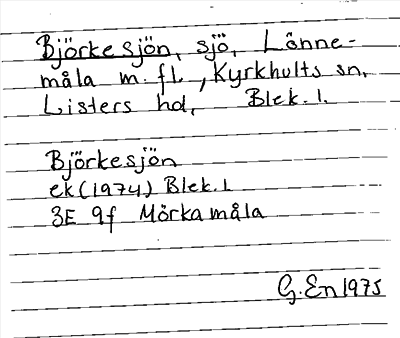 Björkesjön, sjö, Lönne-
måla m.fl., Kyrkhults sn,
Listers hd, Blek.l.
Björkesjön
ek (1974) Blek.l
3E 9f Mörkamåla
G. En 1975